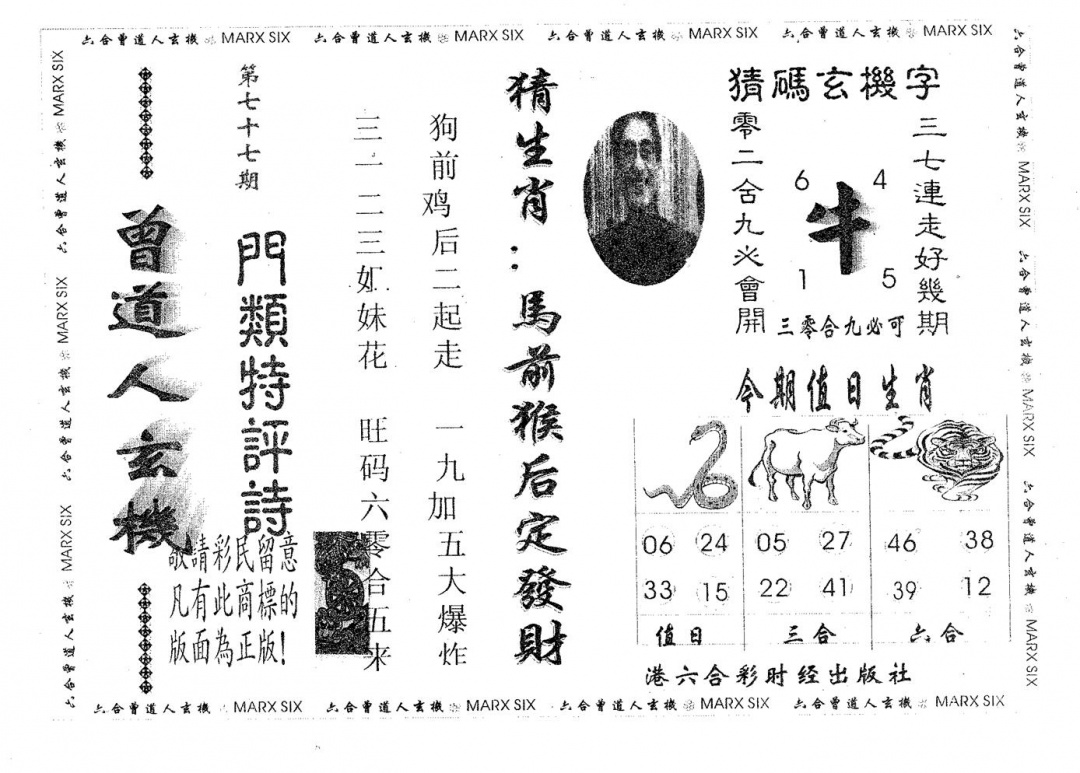 六合曾道人玄機 MARX SIX 六合曾道人玄機 MARX SIX 六合曾道人玄機 MARX SIX 六合曾道人玄機 MARX SIX
猜碼玄機字
三七連走好幾期
零二舍九必會開
6 4
牛
1 5
三零合九必可
猜生肖：馬前猴后定發財
狗前鸡后二起走 一九加五大爆炸
三一二三姒妹花 旺码六零合五来
第七十七期
門類特評詩
曾道人玄機
敬請彩民留意
凡有此商標的
版面為正版!
今期值日生肖
06 24 05 27 46 38
33 15 22 41 39 12
值日 三合 六合
港六合彩时经出版社
六合曾道人玄機 MARX SIX 六合曾道人玄機 MARX SIX 六合曾道人玄機 MARX SIX
六合曾道人玄機 MARX SIX 六合曾道人玄機 MARX SIX 六合曾道人玄機 MARX SIX
六合曾道人玄機 MARX SIX 六合曾道人玄機 MARX SIX 六合曾道人玄機 MARX SIX 六合曾道人玄機 MARX SIX